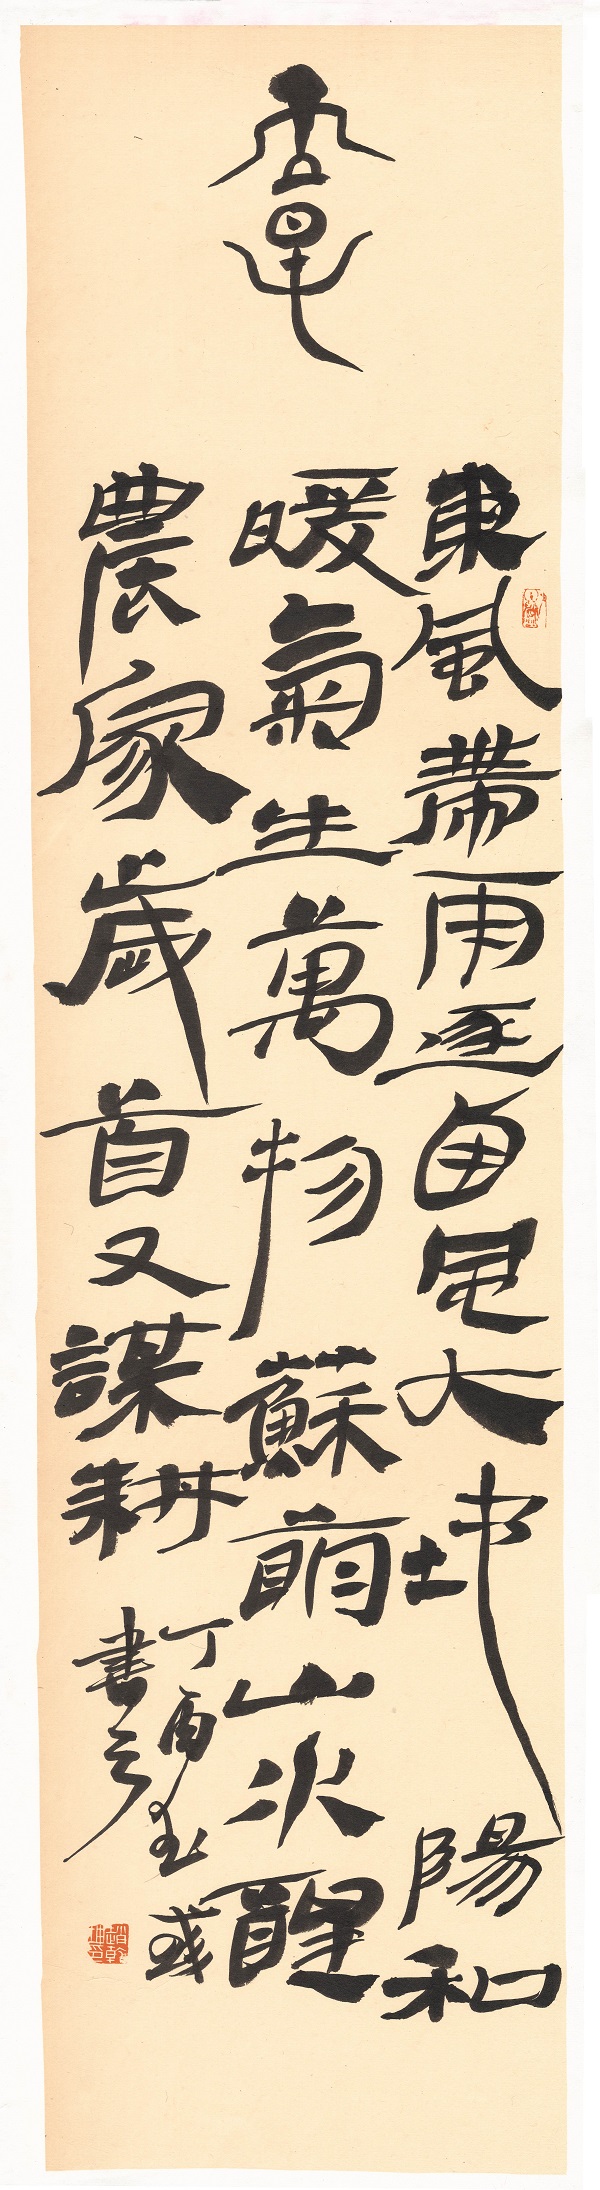 東風帶雨逐西風大地陽和
暖氣生萬物蘇萌山水醒
農家歲首又謀耕
丁酉
書